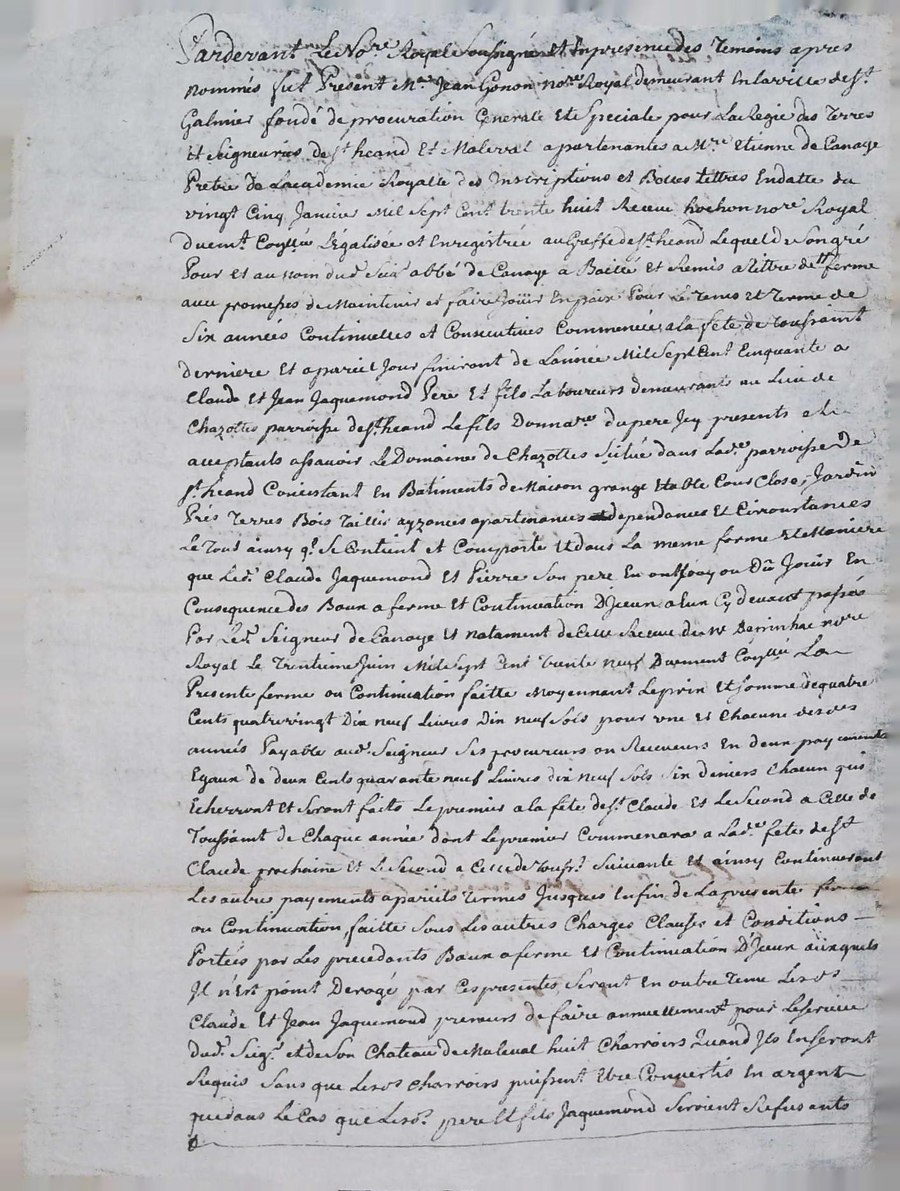 Pardevant Le No.re Royal Soussigné et En presence des Temoins apres
nommés fut Present M.e Jean Gonon no.re Royal demeurant En la ville de S.t
Galmier fondé de procuration Generale Et Speciale pour La Regie des Terres
Et Seigneuries de S.t heand Et Maleval apartenantes a M.re Etienne de Canaye
Pretre de Lacademie Royalle des Inscriptions et Belles Lettres En datte du
vingt Cinq Janvier Mil Sept Cent trente huit Receue hochon no.re Royal
duem.t Légalisée et Enregistrée au Greffe de S.t heand Lequel de Son gré
Pour et au nom dud. Seig.r abbé de Canaye a Baillé et Remis a tittre de ferme
avec promesses de Maintenir et faire Joüir En paix Pour Le Tems et Terme de
Six années Continuelles et Consecutives Commencées a la fete de Toussaint
derniere Et a pareil Jour finiront de Lannée Mil Sept Cent Cinquante a
Claude Et Jean Jaquemond Pere Et fils Laboureurs demeurants au Lieu de
Chazottes parroisse de S.t heand Le fils Donna.re du pere Icy presents et
acceptants assavoir Le Domaine de Chazottes Scitué dans Lad.e parroisse De
S.t heand Consistant En Batiments de Maison grange Etable Cour Close, Jardin
Prés Terres Bois Taillis ayzances apartenances dependances Et Circonstances
Le Tout ainsy q.l Se Contient et Comporte Et dans La meme forme Et Maniere
que Led.t Claude Jaquemond Et Pierre Son pere En ont Joüy ou Dû Joüir En
Consequence des Baux a ferme et Continuation D'Iceux a Eux Cy devant passés
Par Led.t Seigneur de Canaye Et notament de Celle Receue no.re
Royal Le Trentieme Juin Mil Sept Cent trente neuf Duement La
Presente ferme ou Continuation faitte Moyennant Le prix Et Somme de quatre
Cents quatrevingt Dix neuf Livres Dix neuf Sols pour une Et Chacune desd.es
années Payable aud. Seigneur Ses procureurs ou Receveurs En deux payements
Egaux de deux Cents quarante neuf Livres dix neuf Sols Six deniers Chacun qui
Echerront Et Seront faits Le premier a la fete de S.t Claude Et Le Second a Celle de
Toussaint de Chaque année dont Le premier Commencera a Lad.e fete de S.t
Claude prochaine Et Le Second a Celle de Touss.t Suivante Et ainsy Continueront
Les autres payements a pareils Termes Jusques En fin de La presente ferme
ou Continuation, faitte Sous Les autres Charges Clauses et Conditions
Portées par Les precedants Baux a ferme Et Continuation D'Iceux auxquels
Il n'Est point Derogé par Ces presentes, Seront En outre Tenus Lesd.s
Claude Et Jean Jaquemond preneurs de faire annuellement pour Le Service
dud.t Seig.r et de Son Chateau de Maleval huit Charroirs Quand Ils En Seront
Requis Sans que Lesd.s Charroirs puissent Etre Convertis En argent
que dans Le Cas que Lesd.s pere Et fils Jaquemond Seroient Refusants